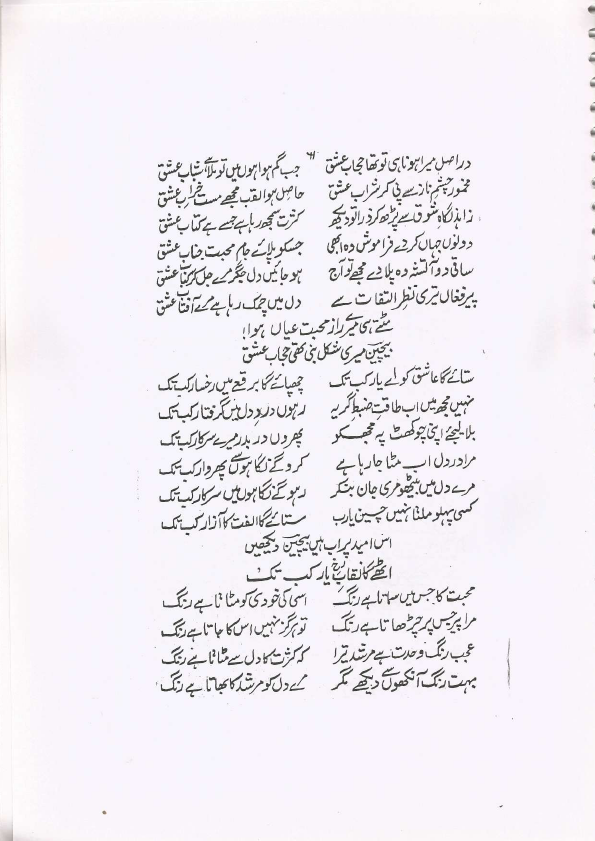 ۶۱
دراصل میرا ہونا ہی تو تھا حجاب عشق جب گم ہوا ہوں میں تو ملا ہے شباب عشق
مخمور چشم ناز سے پی کر شراب عشق حاصل ہوا لقب مجھے مست خراب عشق
زاہد نگاہ شوق سے پڑھ کر ذرا تو دیکھ کثرت سمجھ رہا ہے جسے ہے کتاب عشق
دونوں جہاں کر دے فراموش وہ ابھی جسکو پلائے جام محبت جناب عشق
ساقی دو آتشہ وہ پلا دے مجھے تو آج ہو جائیں دل جگر مرے جل کر کباب عشق
پیر فغاں تیری نظر التفات سے دل میں چمک رہا ہے مرے آفتاب عشق
مٹتے ہی میرے راز محبت عیاں ہوا!
بیچینؔ میری شکل بنی تھی حجاب عشق
ستائے گا عاشق کو اے یار کب تک چھپائے گا برقعے میں رخسار کب تک
نہیں مجھ میں اب طاقت ضبط گریہ رہوں درد دل میں گرفتار کب تک
بلا لیجئے اپنی چوکھٹ پہ مجھکو پھروں در بدر میرے سرکار کب تک
مرا درد دل اب مٹا جا رہا ہے کرو گے نگاہوں سے پھر وار کب تک
مرے دل میں بیٹھو مری جان بنکر رہو گے نگاہوں میں سرکار کب تک
کسی پہلو ملتا نہیں چین یارب ستائے گا الفت کا آزار کب تک
اس امید پر اب ہیں بیچینؔ دیکھیں
اٹھے گا نقاب رخ یار کب تک
محبت کا جس میں سماتا ہے رنگ اسی کی خودی کو مٹاتا ہے رنگ
مرا پیر جس پر چڑھاتا ہے رنگ تو ہرگز نہیں اس کا جاتا ہے رنگ
عجب رنگ وحدت ہے مرشد تیرا کہ کثرت کا دل سے مٹاتا ہے رنگ
بہت رنگ آنکھوں سے دیکھے مگر مرے دل کو مرشد کا بھاتا ہے رنگ